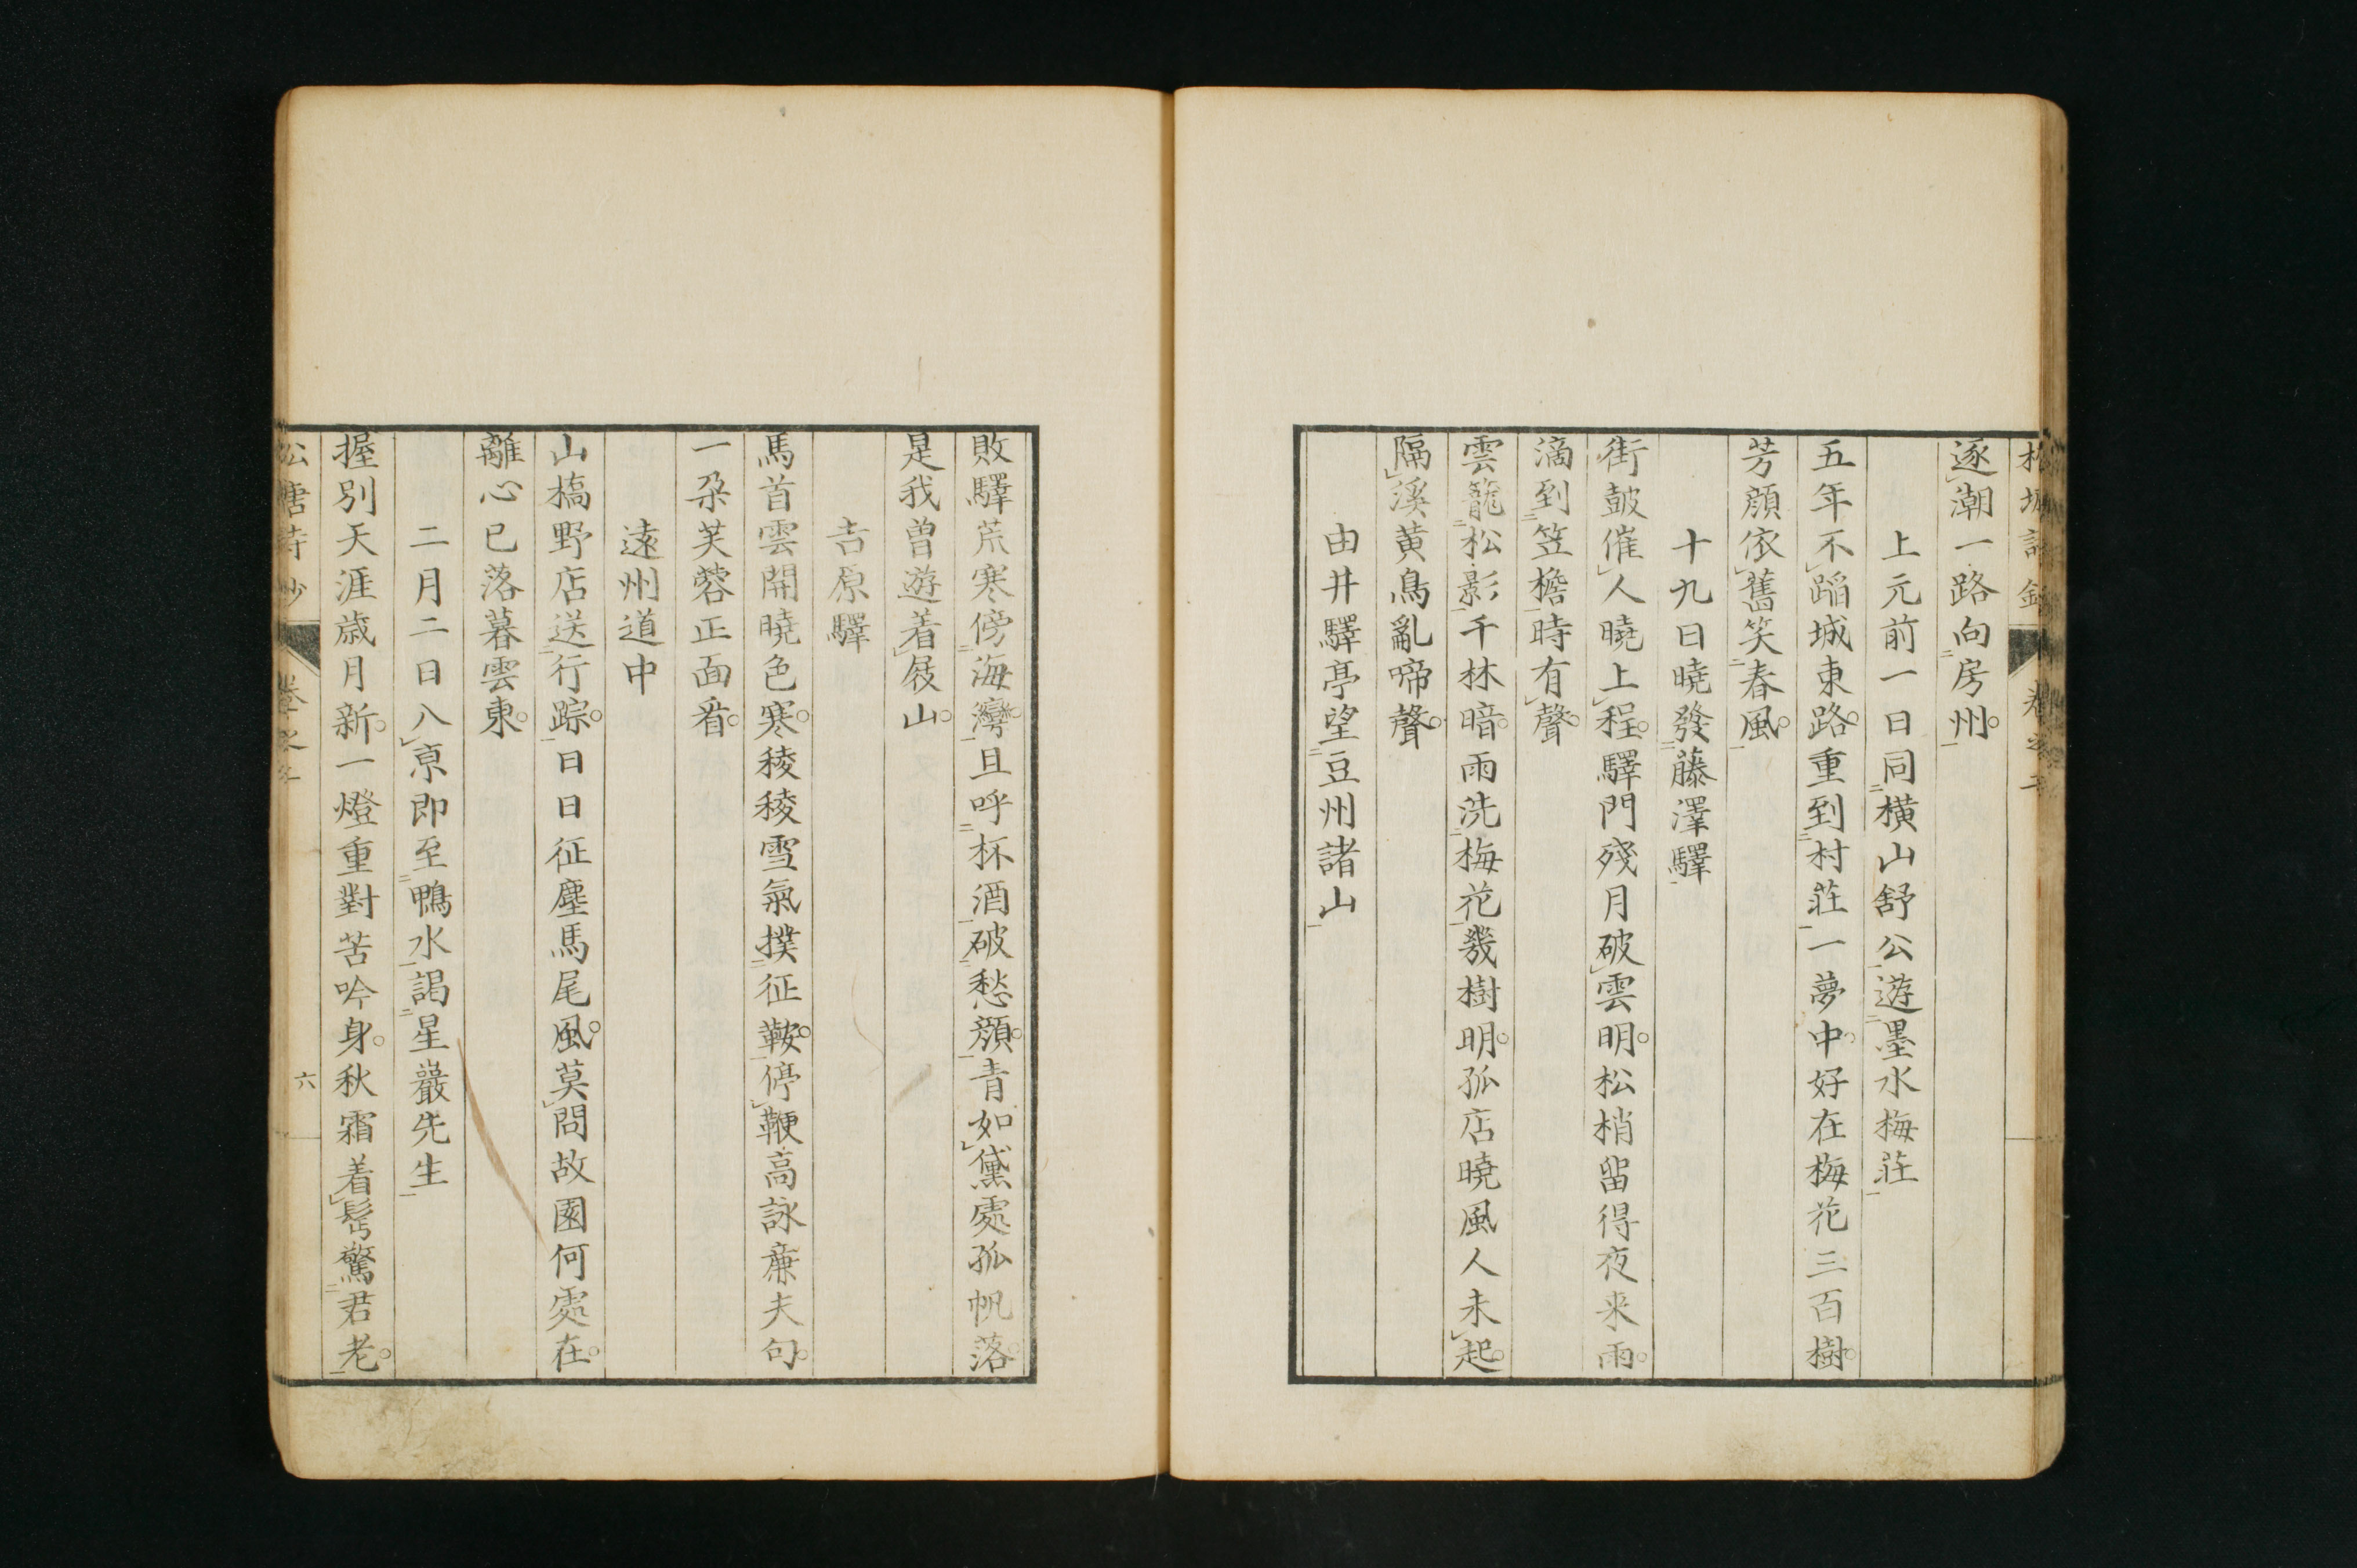 逐潮一路向房州。
上元前一日同横山舒公遊墨水梅莊
五年不蹈城東路。重到村莊一夢中。好在梅花三百樹。
芳顔依舊笑春風。
十九日曉發藤澤驛
街皷催人曉上程。驛門殘月破雲明。松梢留得夜来雨。
滴到笠檐時有聲。
雲籠松影千林暗。雨洗梅花幾樹明。孤店曉風人未起。
隔溪黄鳥亂啼聲。
由井驛亭望豆州諸山
敗驛荒寒傍海灣。且呼杯酒破愁顔。青如黛處孤帆落。
是我曽遊着屐山。
吉原驛
馬首雲開曉色寒。稜稜雪氣撲征鞍。停鞭高詠廉夫句。
一朶芙蓉正面看。
遠州道中
山橋野店送行踪。日日征塵馬尾風。莫問故園何處在。
離心已落暮雲東。
二月二日入京即至鴨水謁星巖先生
握别天涯歳月新。一燈重對苦吟身。秋霜着髩驚君老。
松塘詩鈔 卷之 六